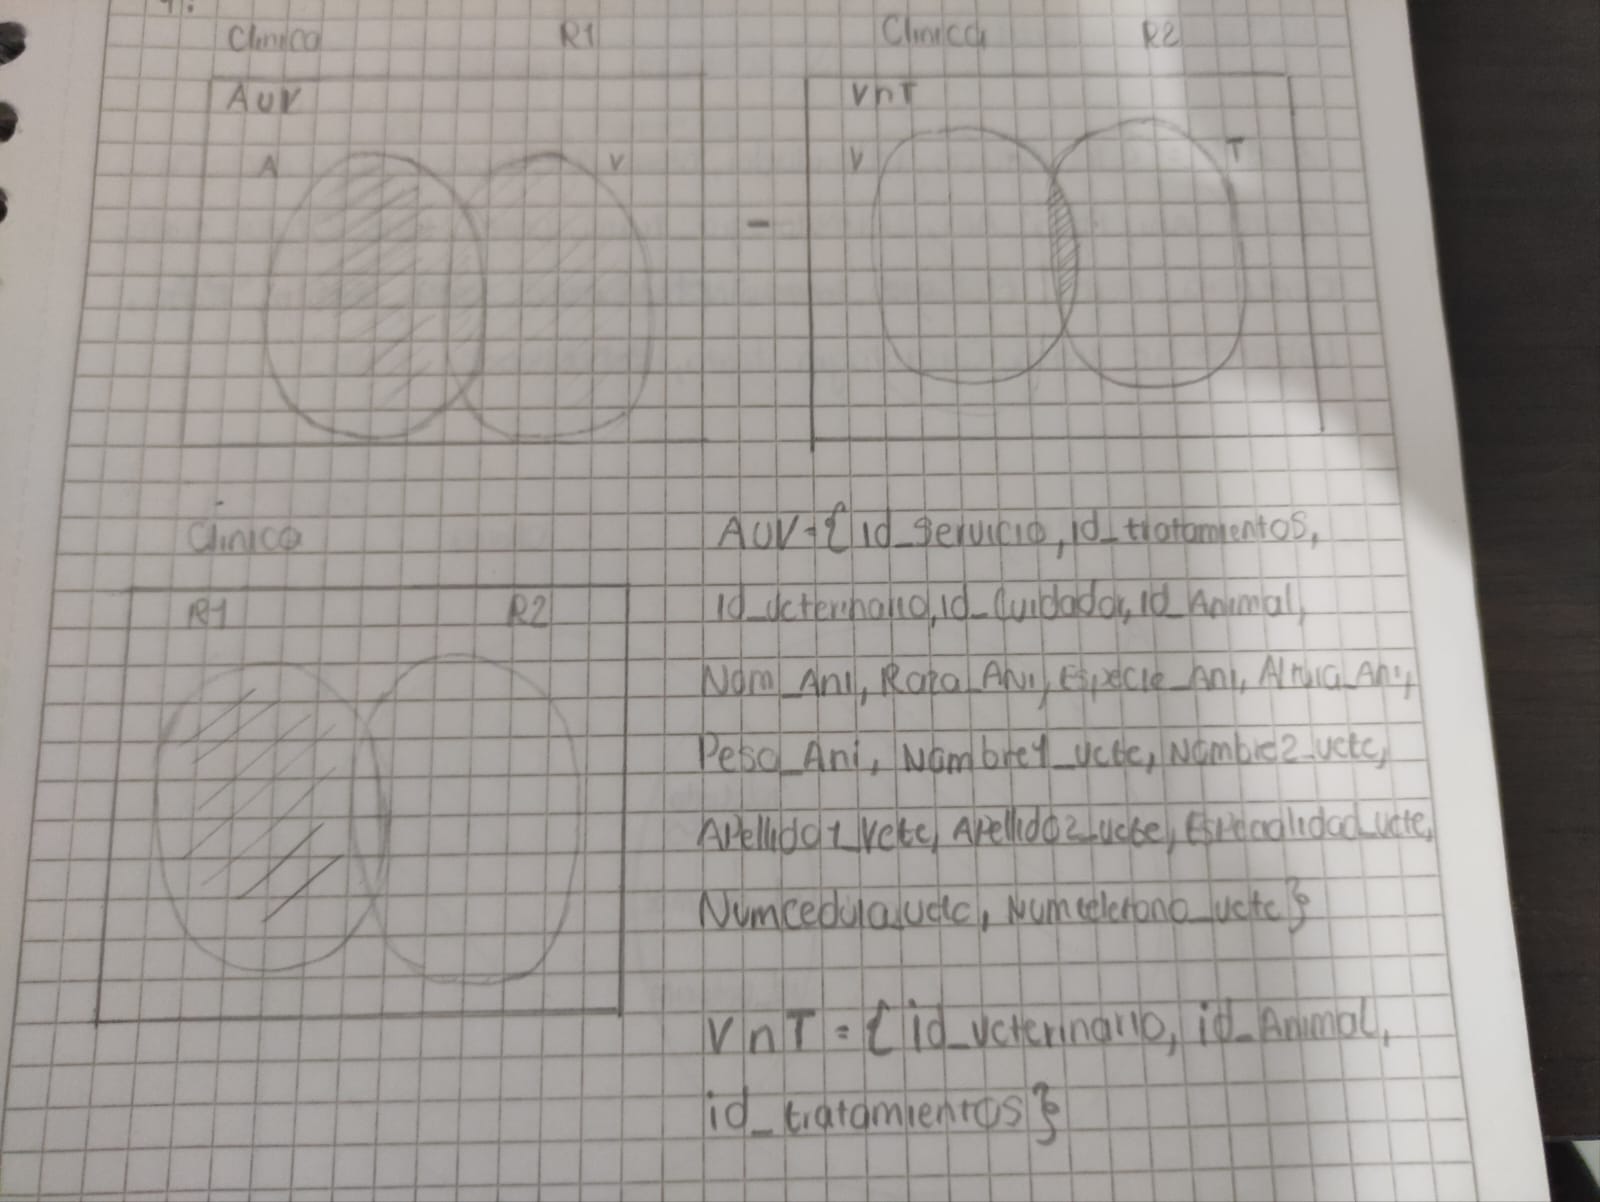 Clinica R1
AUV
A V
-
Clinica R2
VnT
V T
Clinica
R1 R2
AUV={id_servicio, id_tratamientos,
id_veterinario, id_Cuidador, id_Animal,
Nom_Ani, Raza_Ani, Especie_Ani, Altura_Ani,
Peso_Ani, Nombre1_vete, Nombre2_vete,
Apellido1_vete, Apellido2_vete, Especialidad_vete,
Numcedula_vete, Numtelefono_vete}
VnT = {id_veterinario, id_Animal,
id_tratamientos}